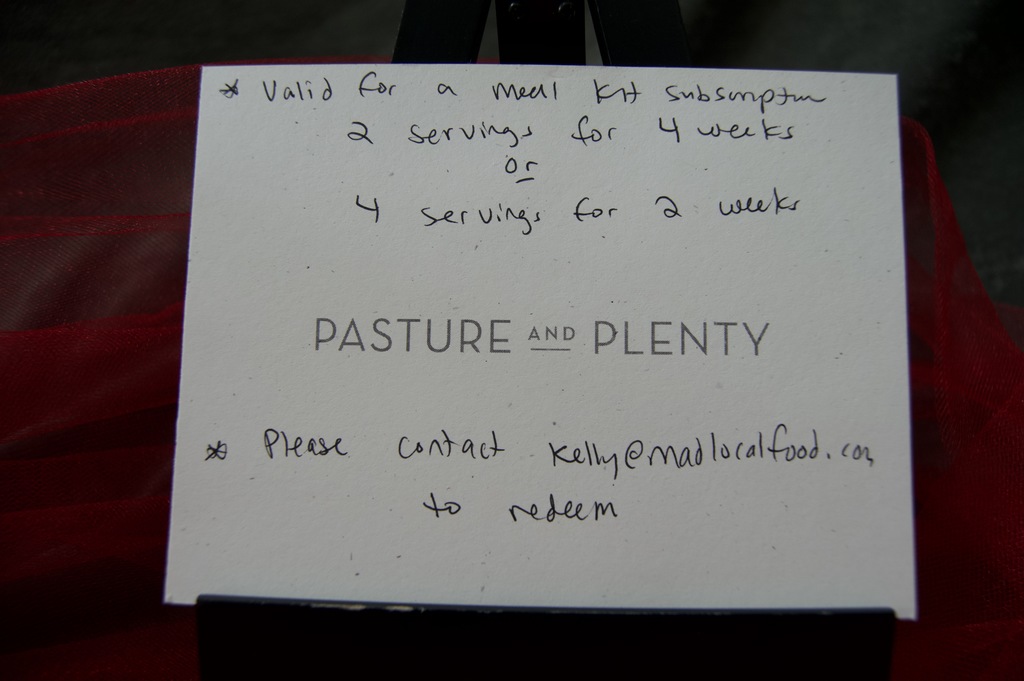 * Valid for a meal kit subscription
2 servings for 4 weeks
or
4 servings for 2 weeks
PASTURE AND PLENTY
* Please contact kelly@madlocalfood.com
to redeem